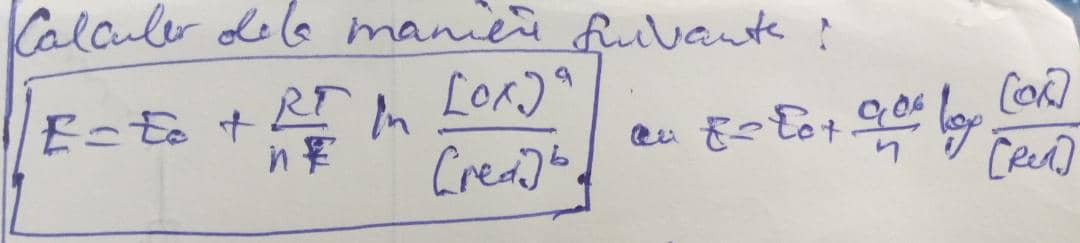 Calculer de la manière suivante :
E = E₀ + RT/nF ln [ox]ᵃ/[red]ᵇ ou E = E₀ + 0,06/n log [ox]/[Red]